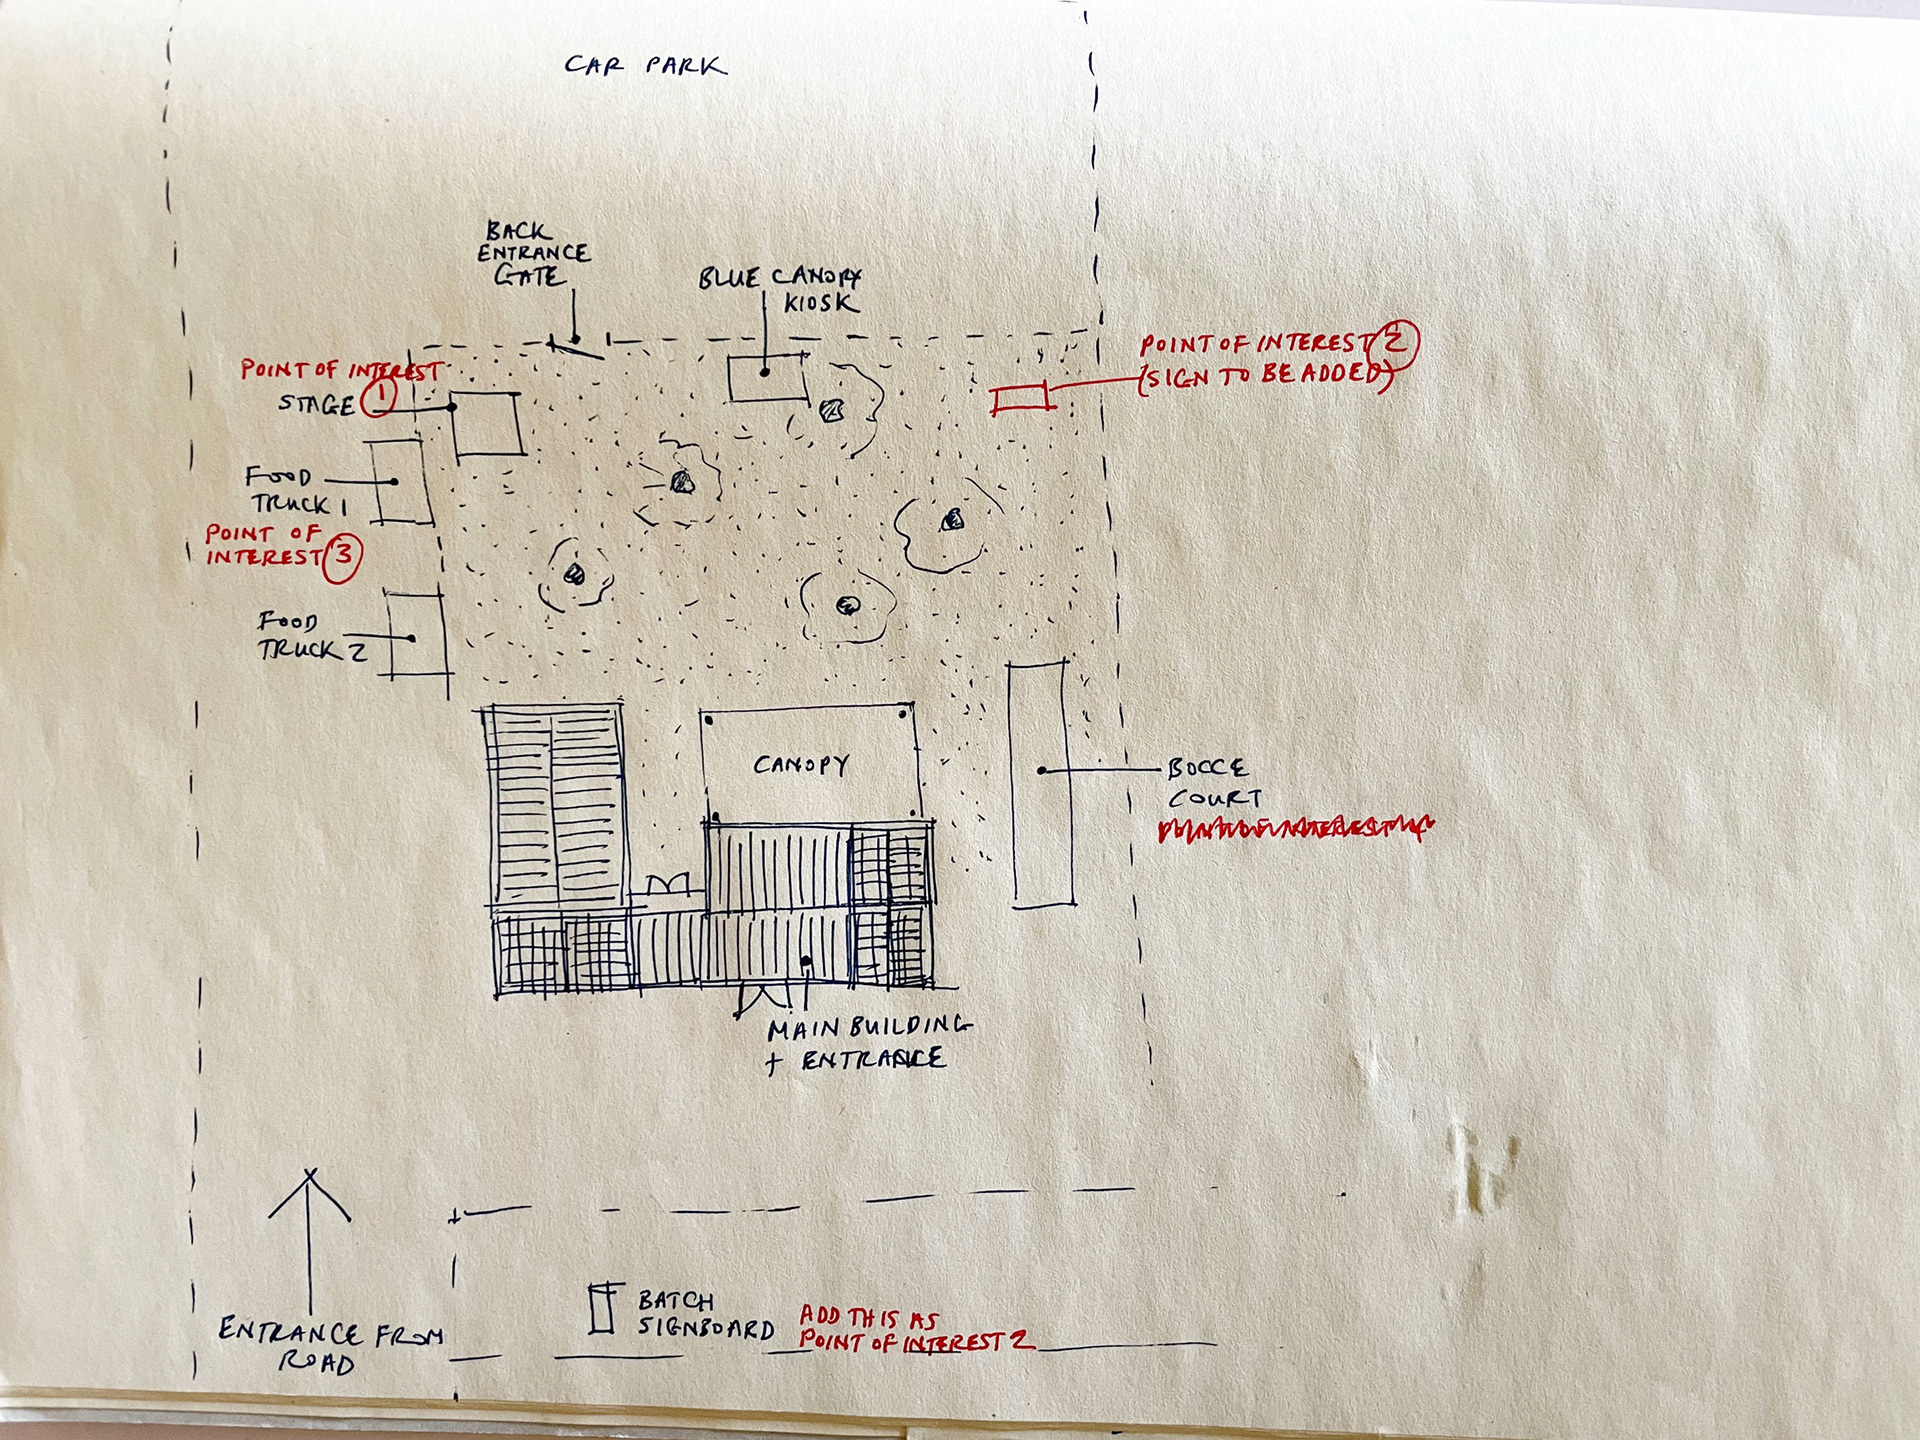 CAR PARK
BACK
ENTRANCE
GATE
BLUE CANOPY
KIOSK
POINT OF INTEREST 1
STAGE
POINT OF INTEREST 2
(SIGN TO BE ADDED)
FOOD
TRUCK 1
POINT OF
INTEREST 3
FOOD
TRUCK 2
CANOPY
BOCCE
COURT
MAIN BUILDING
+ ENTRANCE
ENTRANCE FROM
ROAD
BATCH
SIGNBOARD
ADD THIS AS
POINT OF INTEREST 2